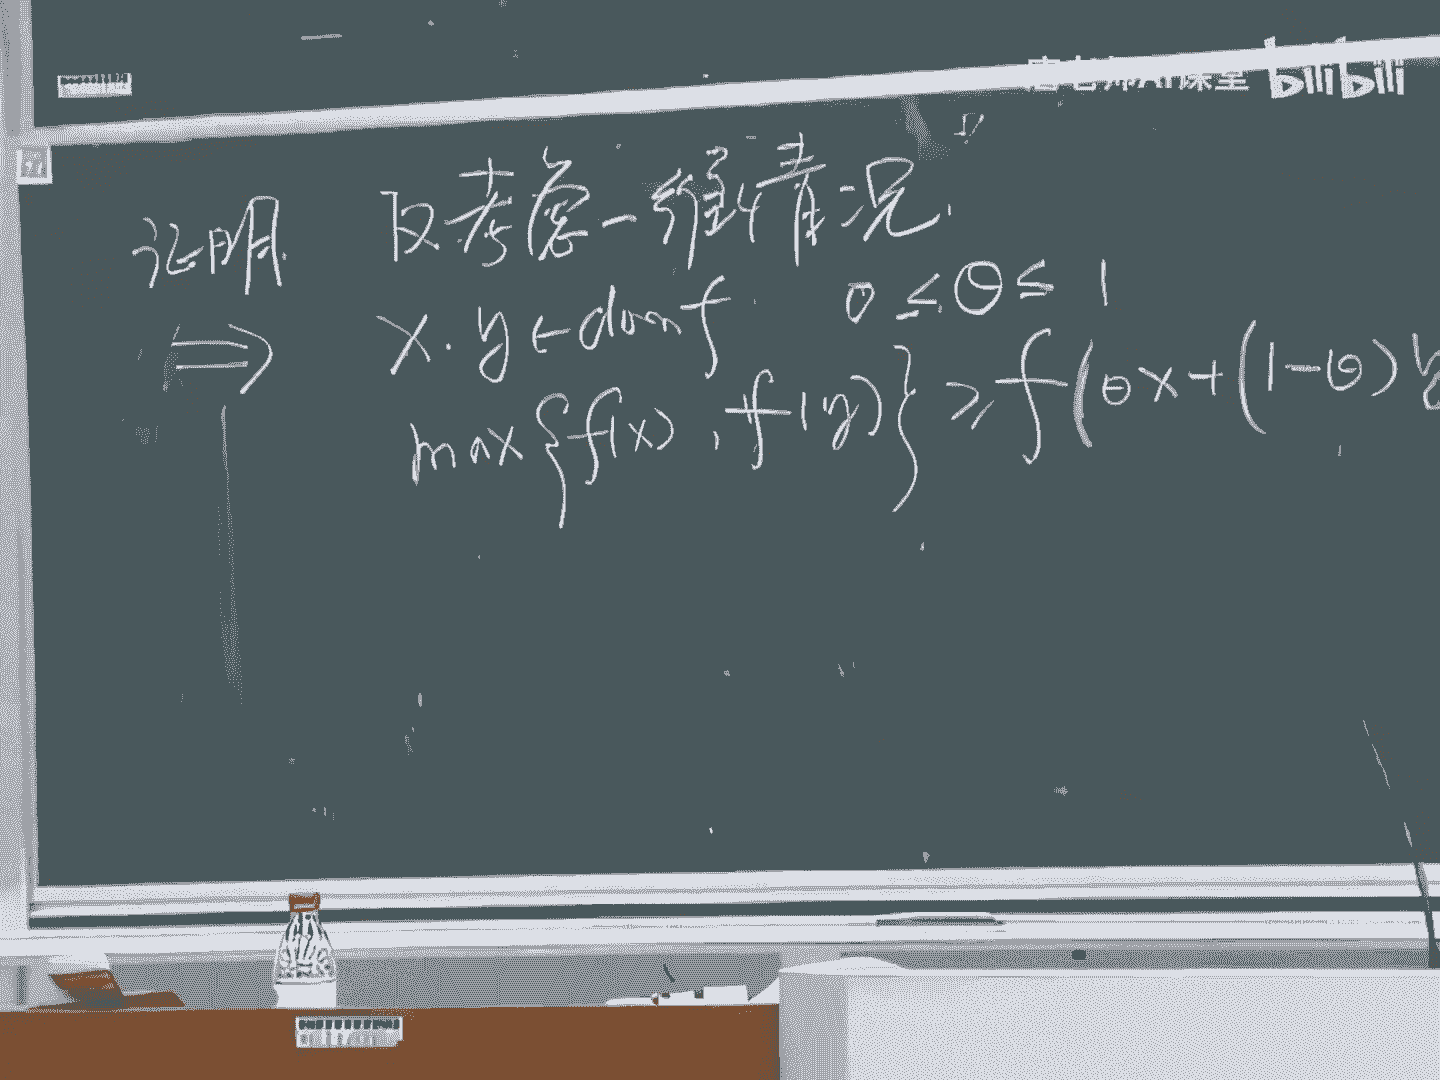 bilibili
证明. 只考虑一维情况.
⇒ x.y∈domf. 0≤θ≤1
max{f(x),f(y)}≥f(θx+(1-θ)y